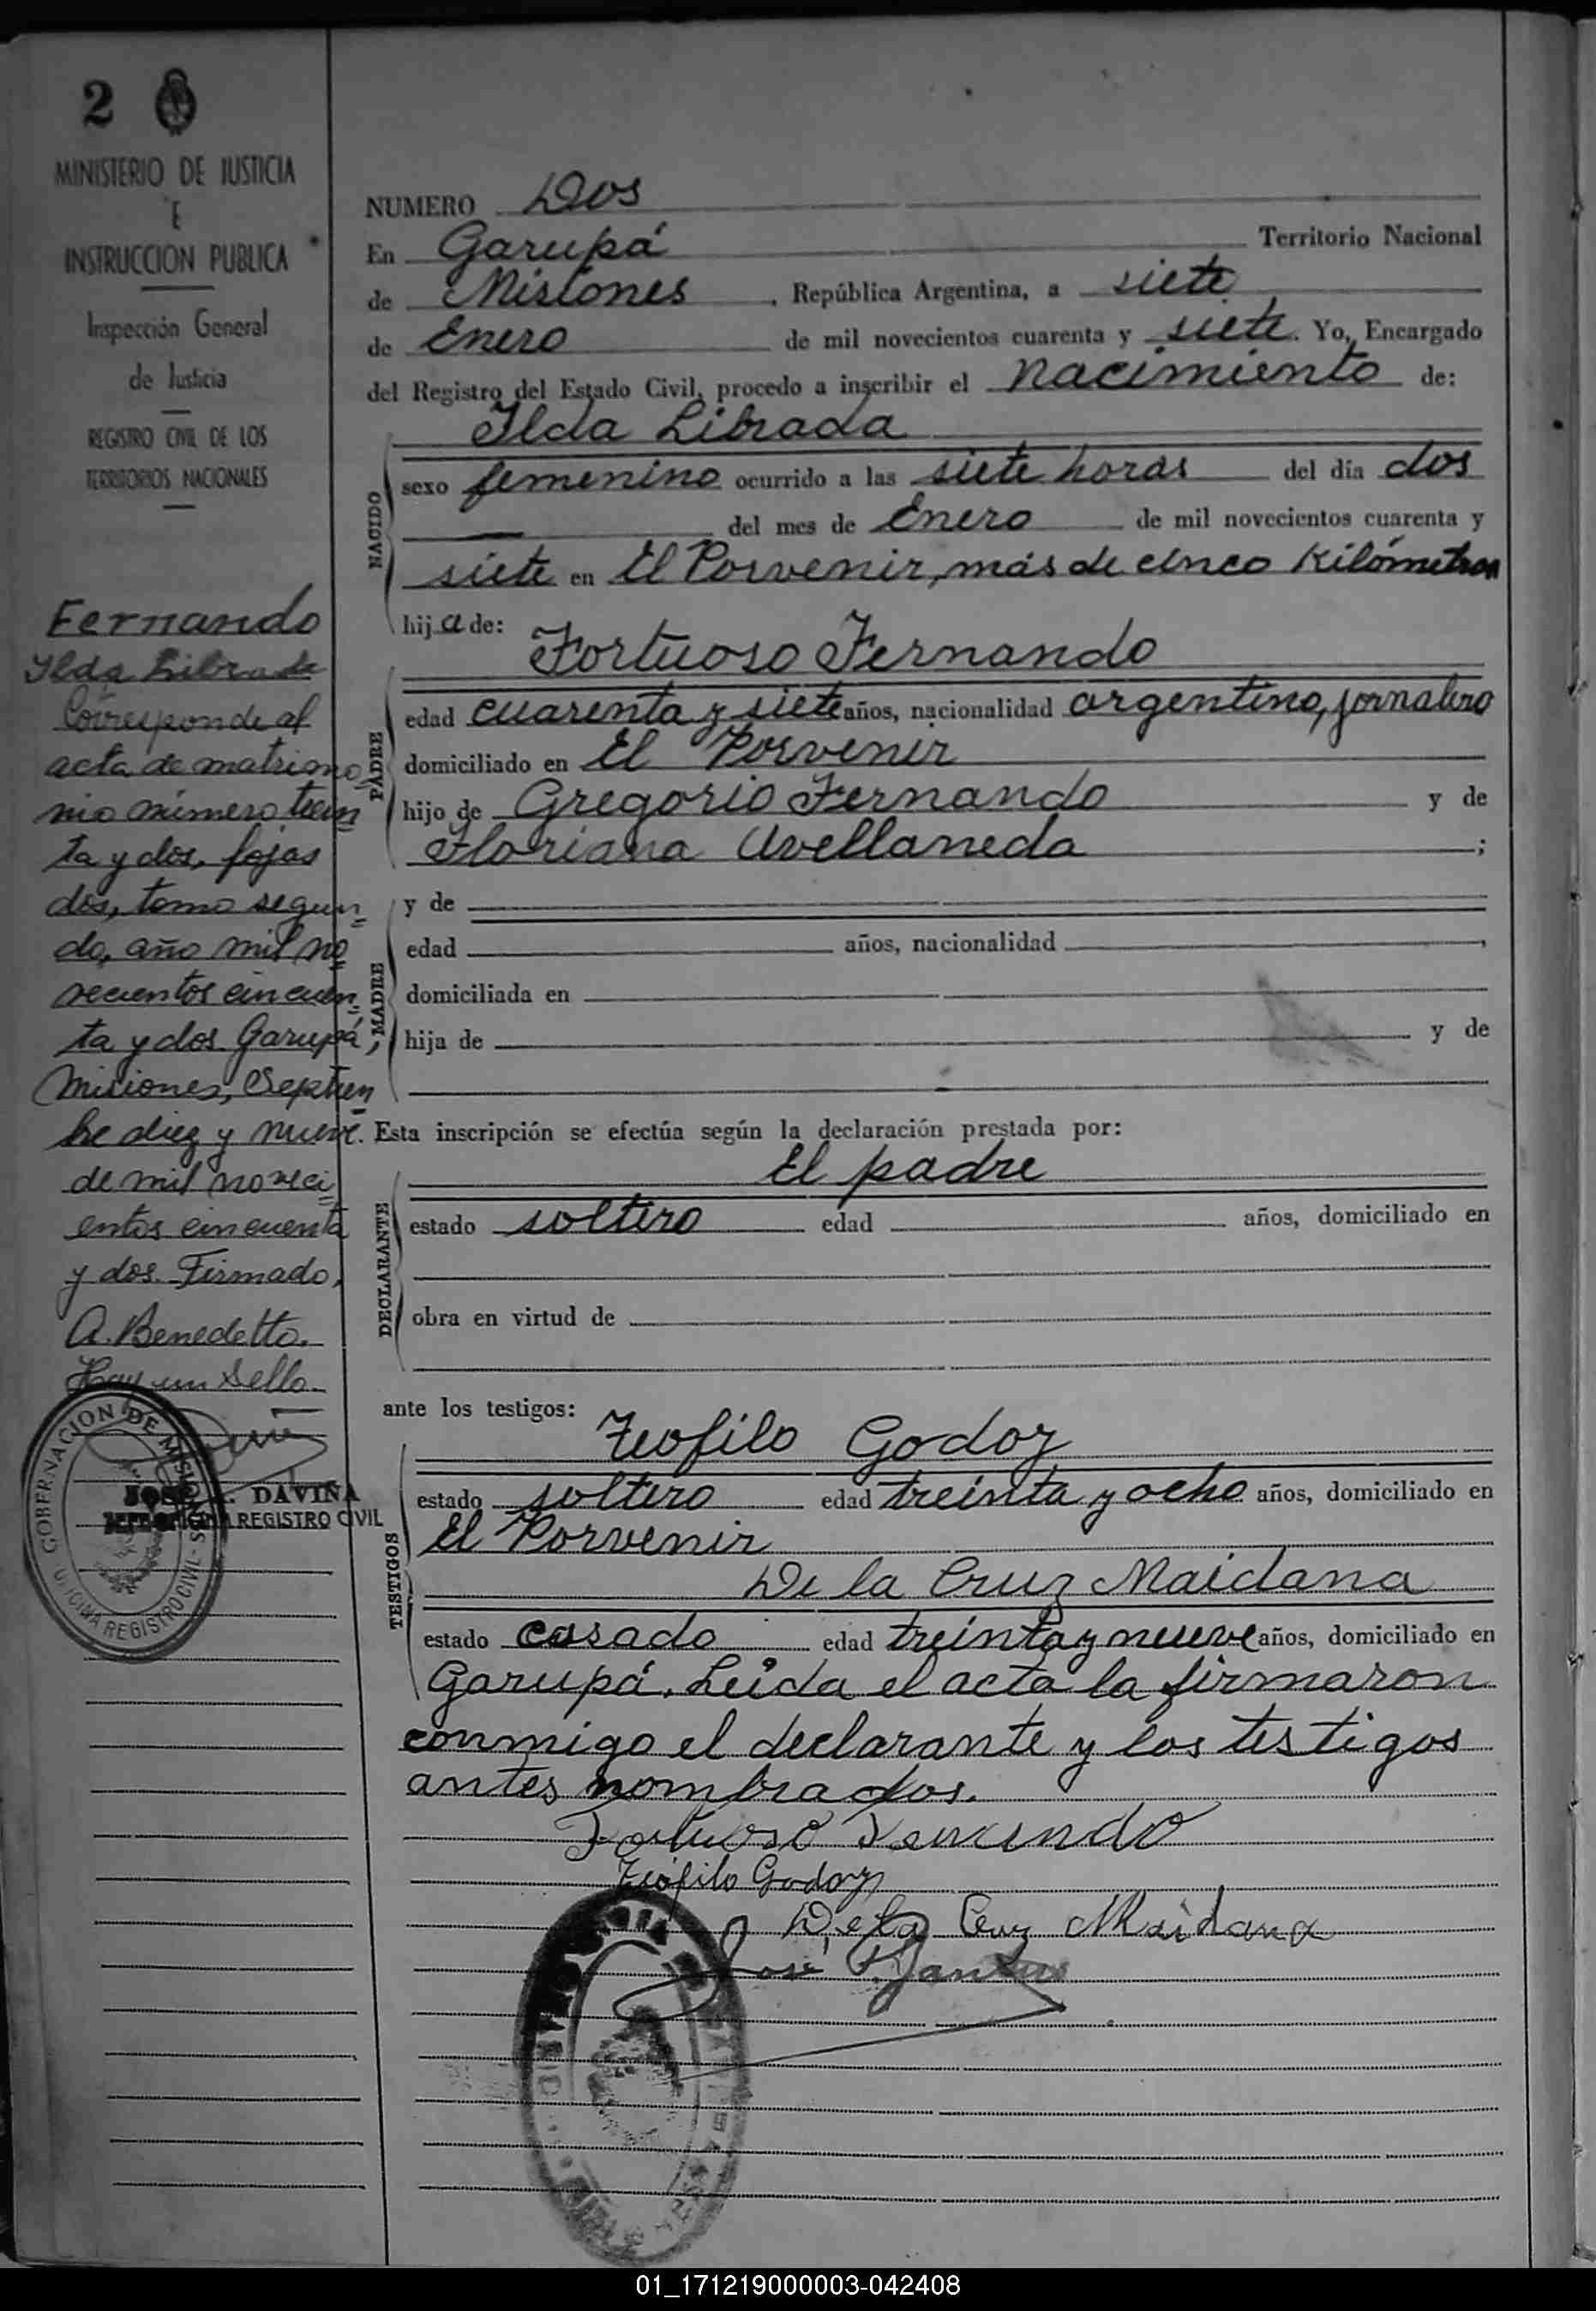 2
MINISTERIO DE JUSTICIA
E
INSTRUCCION PUBLICA
Inspección General
de Justicia
REGISTRO CIVIL DE LOS
TERRITORIOS NACIONALES
Fernando
Ilda Librada
Corresponde al
acta de matrimo
nio número trein
ta y dos, fojas
dos, tomo segun
do, año mil no
vecientos cincuen
ta y dos. Garupá,
Misiones, Septiem
bre diez y nueve
de mil noveci
entos cincuenta
y dos. Firmado,
A. Benedetto.
Hay un sello.
GOBERNACION DE MISIONES
OFICINA REGISTRO CIVIL
JOSE DAVIÑA
JEFE OFICINA REGISTRO CIVIL
NUMERO Dos
En Garupá Territorio Nacional
de Misiones, República Argentina, a siete
de Enero de mil novecientos cuarenta y siete. Yo, Encargado
del Registro del Estado Civil, procedo a inscribir el nacimiento de:
NACIDO
Ilda Librada
sexo femenino ocurrido a las siete horas del día dos
— del mes de Enero de mil novecientos cuarenta y
siete en El Porvenir, más de cinco kilómetros
hija de:
PADRE
Fortuoso Fernando
edad cuarenta y siete años, nacionalidad argentino, jornalero
domiciliado en El Porvenir
hijo de Gregorio Fernando y de
Floriana Avellaneda ;
MADRE
y de
edad años, nacionalidad ,
domiciliada en
hija de y de
Esta inscripción se efectúa según la declaración prestada por:
DECLARANTE
El padre
estado soltero edad años, domiciliado en
obra en virtud de
ante los testigos:
TESTIGOS
Teofilo Godoy
estado soltero edad treinta y ocho años, domiciliado en
El Porvenir
De la Cruz Maidana
estado casado edad treinta y nueve años, domiciliado en
Garupá. Leida el acta la firmaron
conmigo el declarante y los testigos
antes nombrados.
Fortuoso Fernando
Teófilo Godoy
De la Cruz Maidana
José
01_171219000003-042408